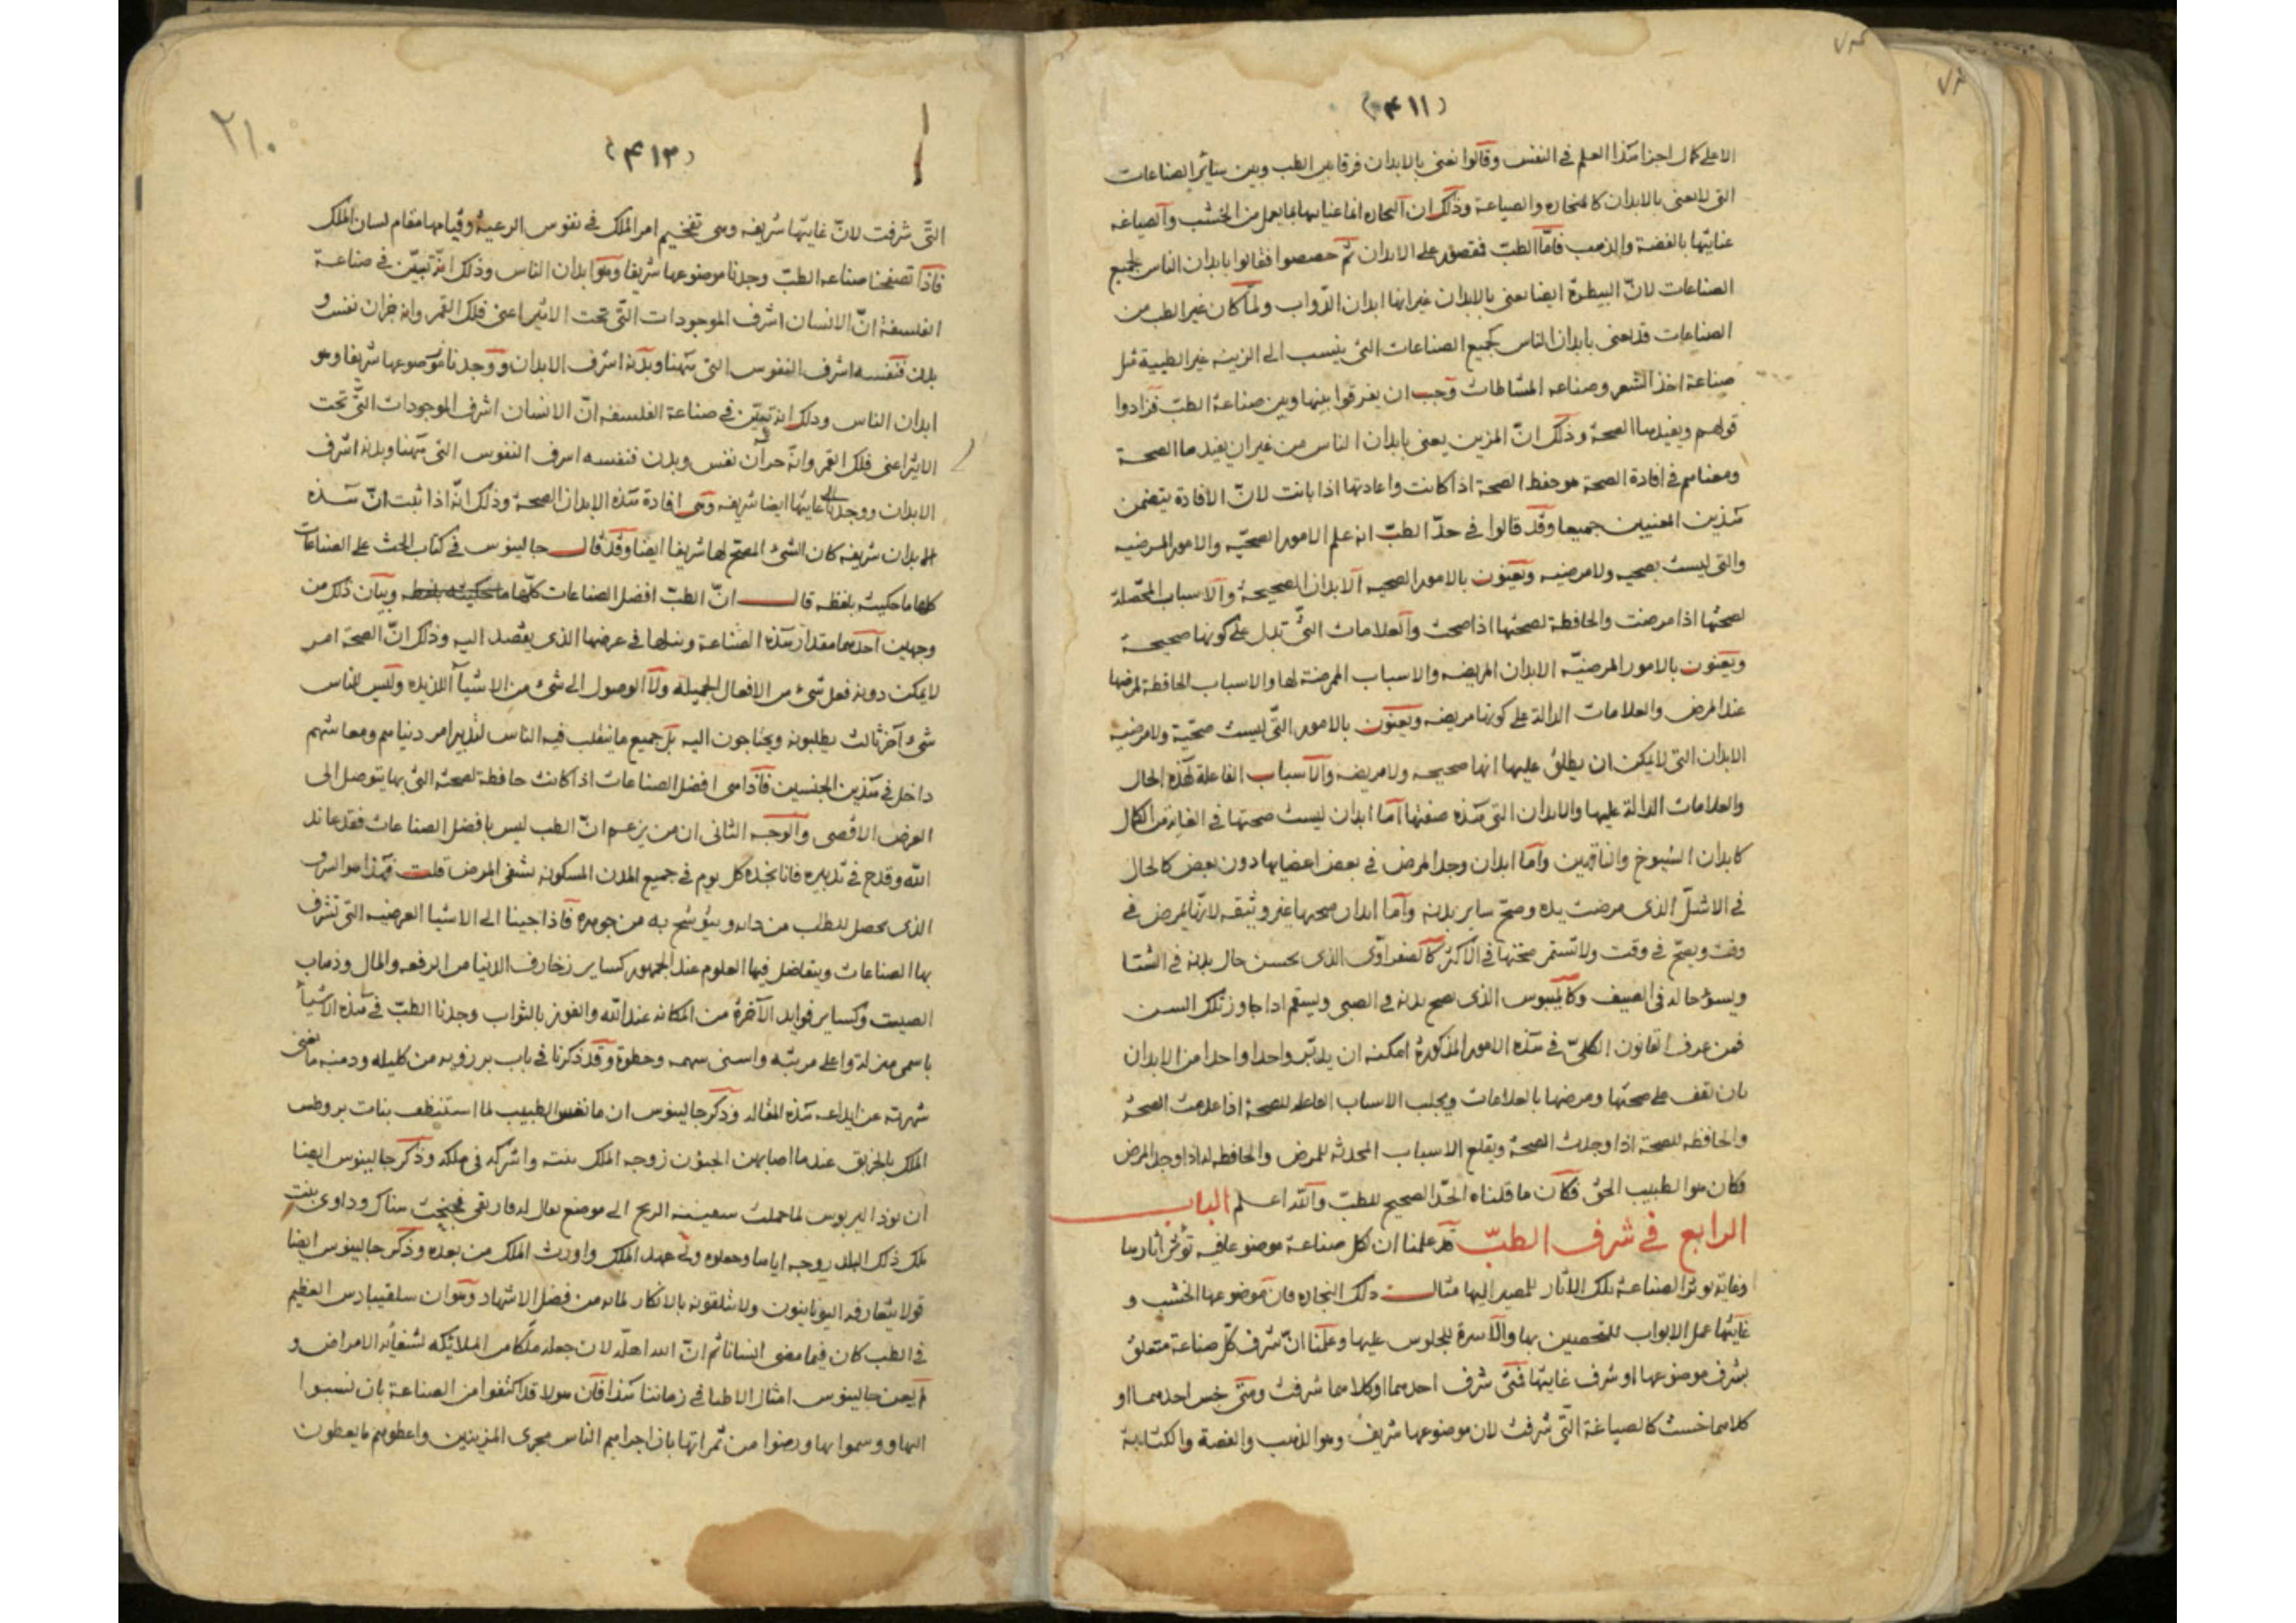 (٤١١)
الا على كمال اجزا هذا العلم في النفس وقالوا تعنى بالابدان فرقا بين الطب وبين سائر الصناعات
التي لا تعنى بالابدان كالنجاره والصياعة وذلك ان النجاره انما عنايتها بما يعمل من الخشب والصياغه
عنايتها بالفضة والذهب فامّا الطبّ فمقصور على الابدان ثم خصصوا فقالوا بابدان الناس لجميع
الصناعات لانّ البيطرة ايضا تعنى بالابدان غير انها ابدان الدّواب ولمّا كان غير الطب من
الصناعات قد تعنى بابدان الناس كجميع الصناعات التى ينسب الى الزينه غير الطبية مثل
صناعة اخذ الشعر وصناعه المشاطات وجب ان يفرقوا بينها وبين صناعة الطبّ فزادوا
قولهم ويفيدها الصحة وذلك انّ المزين يعنى بابدان الناس من غير ان يفيدها الصحة
ومعناهم في افادة الصحة هو حفظ الصحة اذا كانت واعادتها اذا بانت لانّ الافادة يتضمن
هذين المعنيين جميعا وقد قالوا في حدّ الطبّ انه علم الامور الصحيّه والامور المرضيه
والتى ليست بصحيه ولا مرضيه ويعنون بالامور الصحيه الابدان الصحيحة والاسباب المحصّلة
لصحتها اذا مرضت والحافظة لصحتها اذا صحت والعلامات التىّ تدل على كونها صحيحة
ويعنون بالامور المرضيّه الابدان المريضه والاسباب الممرضة لها والاسباب الحافظة لمرضها
عند المرض والعلامات الدالة على كونها مريضه ويعنون بالامور التّى ليست صحيّة ولا مرضيه
الابدان التى لا يمكن ان يطلق عليها انها صحيحه ولا مريضه والاسباب الفاعلة لهذه الحال
والعلامات الدالة عليها والابدان التى هذه صفتها اما ابدان ليست صحتها في الغاية من الكمال
كابدان الشيوخ والناقهين واما ابدان وجد المرض في بعض اعضايها دون بعض كالحال
في الاشلّ الذى مرضت يده وصحّ ساير بدنه وأما ابدان صحتها غير وثيقه لانها تمرض في
وقت ويصحّ في وقت ولا تستمر صحتها في الاكثر كالصفراوى الذى يحسن حال بدنه في الشتا
ويسؤ حاله في الصيف وكاليبوس الذى يصح بدنه في الصبى ويسقم اذا جاوز تلك السن
فمن عرف القانون الكلىّ في هذه الامور المذكورة امكنه ان يدبّر واحدا واحدا من الابدان
بان تقف على صحتها ومرضها بالعلامات ويجلب الاسباب الفاعله للصحة اذا عدمت الصحة
والحافظه للصحة اذا وجدت الصحة ويقلع الاسباب المحدثه للمرض والحافظه له اذا وجد المرض
فكان هو الطبيب الحق فكان ما قلناه الحدّ الصحيح للطبّ والله اعلم الباب
الرابع في شرف الطبّ قد علمنا ان لكل صناعة موضوعا فيه تؤثر اثارها
وغاية تؤثر الصناعة تلك الاثار للمصير اليها مثال ذلك النجاره فان موضوعها الخشب و
غايتها عمل الابواب للتحصين بها والاسرة للجلوس عليها وعلمنا انّ شرف كلّ صناعة متعلق
بشرف موضوعها او شرف غايتها فمتى شرف احدهما او كلاهما شرفت ومتى خس احدهما او
كلاهما خست كالصياغة التّى شرفت لان موضوعها شريف وهو الذهب والفضة والكتابة
٢١٠
(٤١٣)
التّى شرفت لانّ غايتها شريفه وهى تفخيم امر الملك في نفوس الرعية وقيامها مقام لسان الملك
فاذا تصفحنا صناعه الطبّ وجدنا موضوعها شريفا وهو ابدان الناس وذلك انه تبيّن في صناعة
الفلسفة انّ الانسان اشرف الموجودات التّى تحت الاثير اعنى فلك القمر وانه جزان نفس و
بدن فنفسه اشرف النفوس التى ههنا وبدنه اشرف الابدان ووجدنا موضوعها شريفا وهو
ابدان الناس وذلك انه تبيّن في صناعة الفلسفه انّ الانسان اشرف الموجودات التّى تحت
الاثير اعنى فلك القمر وانّه جزآن نفس وبدن فنفسه اشرف النفوس التى ههنا وبدنه اشرف
الابدان ووجدنا غايتها ايضا شريفه وهى افادة هذه الابدان الصحة وذلك انّه اذا ثبت انّ هذه
الابدان شريفه كان الشئ المصحح لها شريفا ايضا وقد قال جالينوس في كتاب الحث على الصناعات
كلها ما حكيته بلفظه قال انّ الطبّ افضل الصناعات كلّها ما حكيته بلفظه وبيان ذلك من
وجهين احدهما مقدار هذه الصناعة ونبلها في عرضها الذى يقصد اليه وذلك انّ الصحة امر
لا يمكن دونه فعل شئ من الافعال الجميله ولا الوصول الى شئ من الاشيآ اللذيذه وليس للناس
شئ آخر ثالث يطلبونه ويحتاجون اليه بل جميع ما يتقلب فيه الناس لتدبير امر دنياهم ومعاشهم
داخل في هذين الجنسين فاذا هى افضل الصناعات اذ كانت حافظة لصحة التى بها يتوصل الى
الغرض الاقصى والوجه الثانى ان من يزعم انّ الطب ليس بافضل الصناعات فقد عاند
الله وقدح في تدبيره فانا نجده كل يوم في جميع المدن المسكونه يشفى المرض قلت فهذا هو الشرف
الذى يحصل للطب من ذاته ويتوشح به من جوهره فاذا جينا الى الاشيا العرضيه التى تشرف
بها الصناعات ويتفاضل فيها العلوم عند الجمهور كساير زخارف الدنيا من الرفعه والمال وذهاب
الصيت وكساير فوايد الآخرة من المكانه عند الله والفوز بالثواب وجدنا الطبّ في هذه الاشيآ
باسمى منزلة واعلى مرتبه واسنى سهمه وحظوة وقد ذكرنا في باب برزويه من كليله ودمنه ما تغنى
شهرته عن ايداعه هذه المقاله وذكر جالينوس ان مانفس الطبيب لما استنظف بنات بروطس
الملك بالخربق عند ما اصابهن الجنون زوجه الملك بنته واشركه في ملكه وذكر جالينوس ايضا
ان لما حملت سفينته الريح الى موضع يقال له هناك وداوى بنت
ملك ذلك البلد زوجه اياها وجعلوه ولى عهد الملك واورث الملك من بعده وذكر جالينوس ايضا
قولا يتعارفه اليونانيون ولا يتلقونه بالانكار لما به من فضل الاشهاد وهو ان العظيم
في الطب كان فيما مضى انسانا ثم انّ الله اهلّه لان جعله ملكا من الملائكه لشفآيه الامراض و
لم يعن جالينوس امثال الاطبا في زماننا هذا فان هولا قد اكتفوا من الصناعة بان نسبوا
اليها ووسموا بها ورضوا من ثمراتها بان اجراهم الناس مجرى المزينين واعطوهم ما يعطون